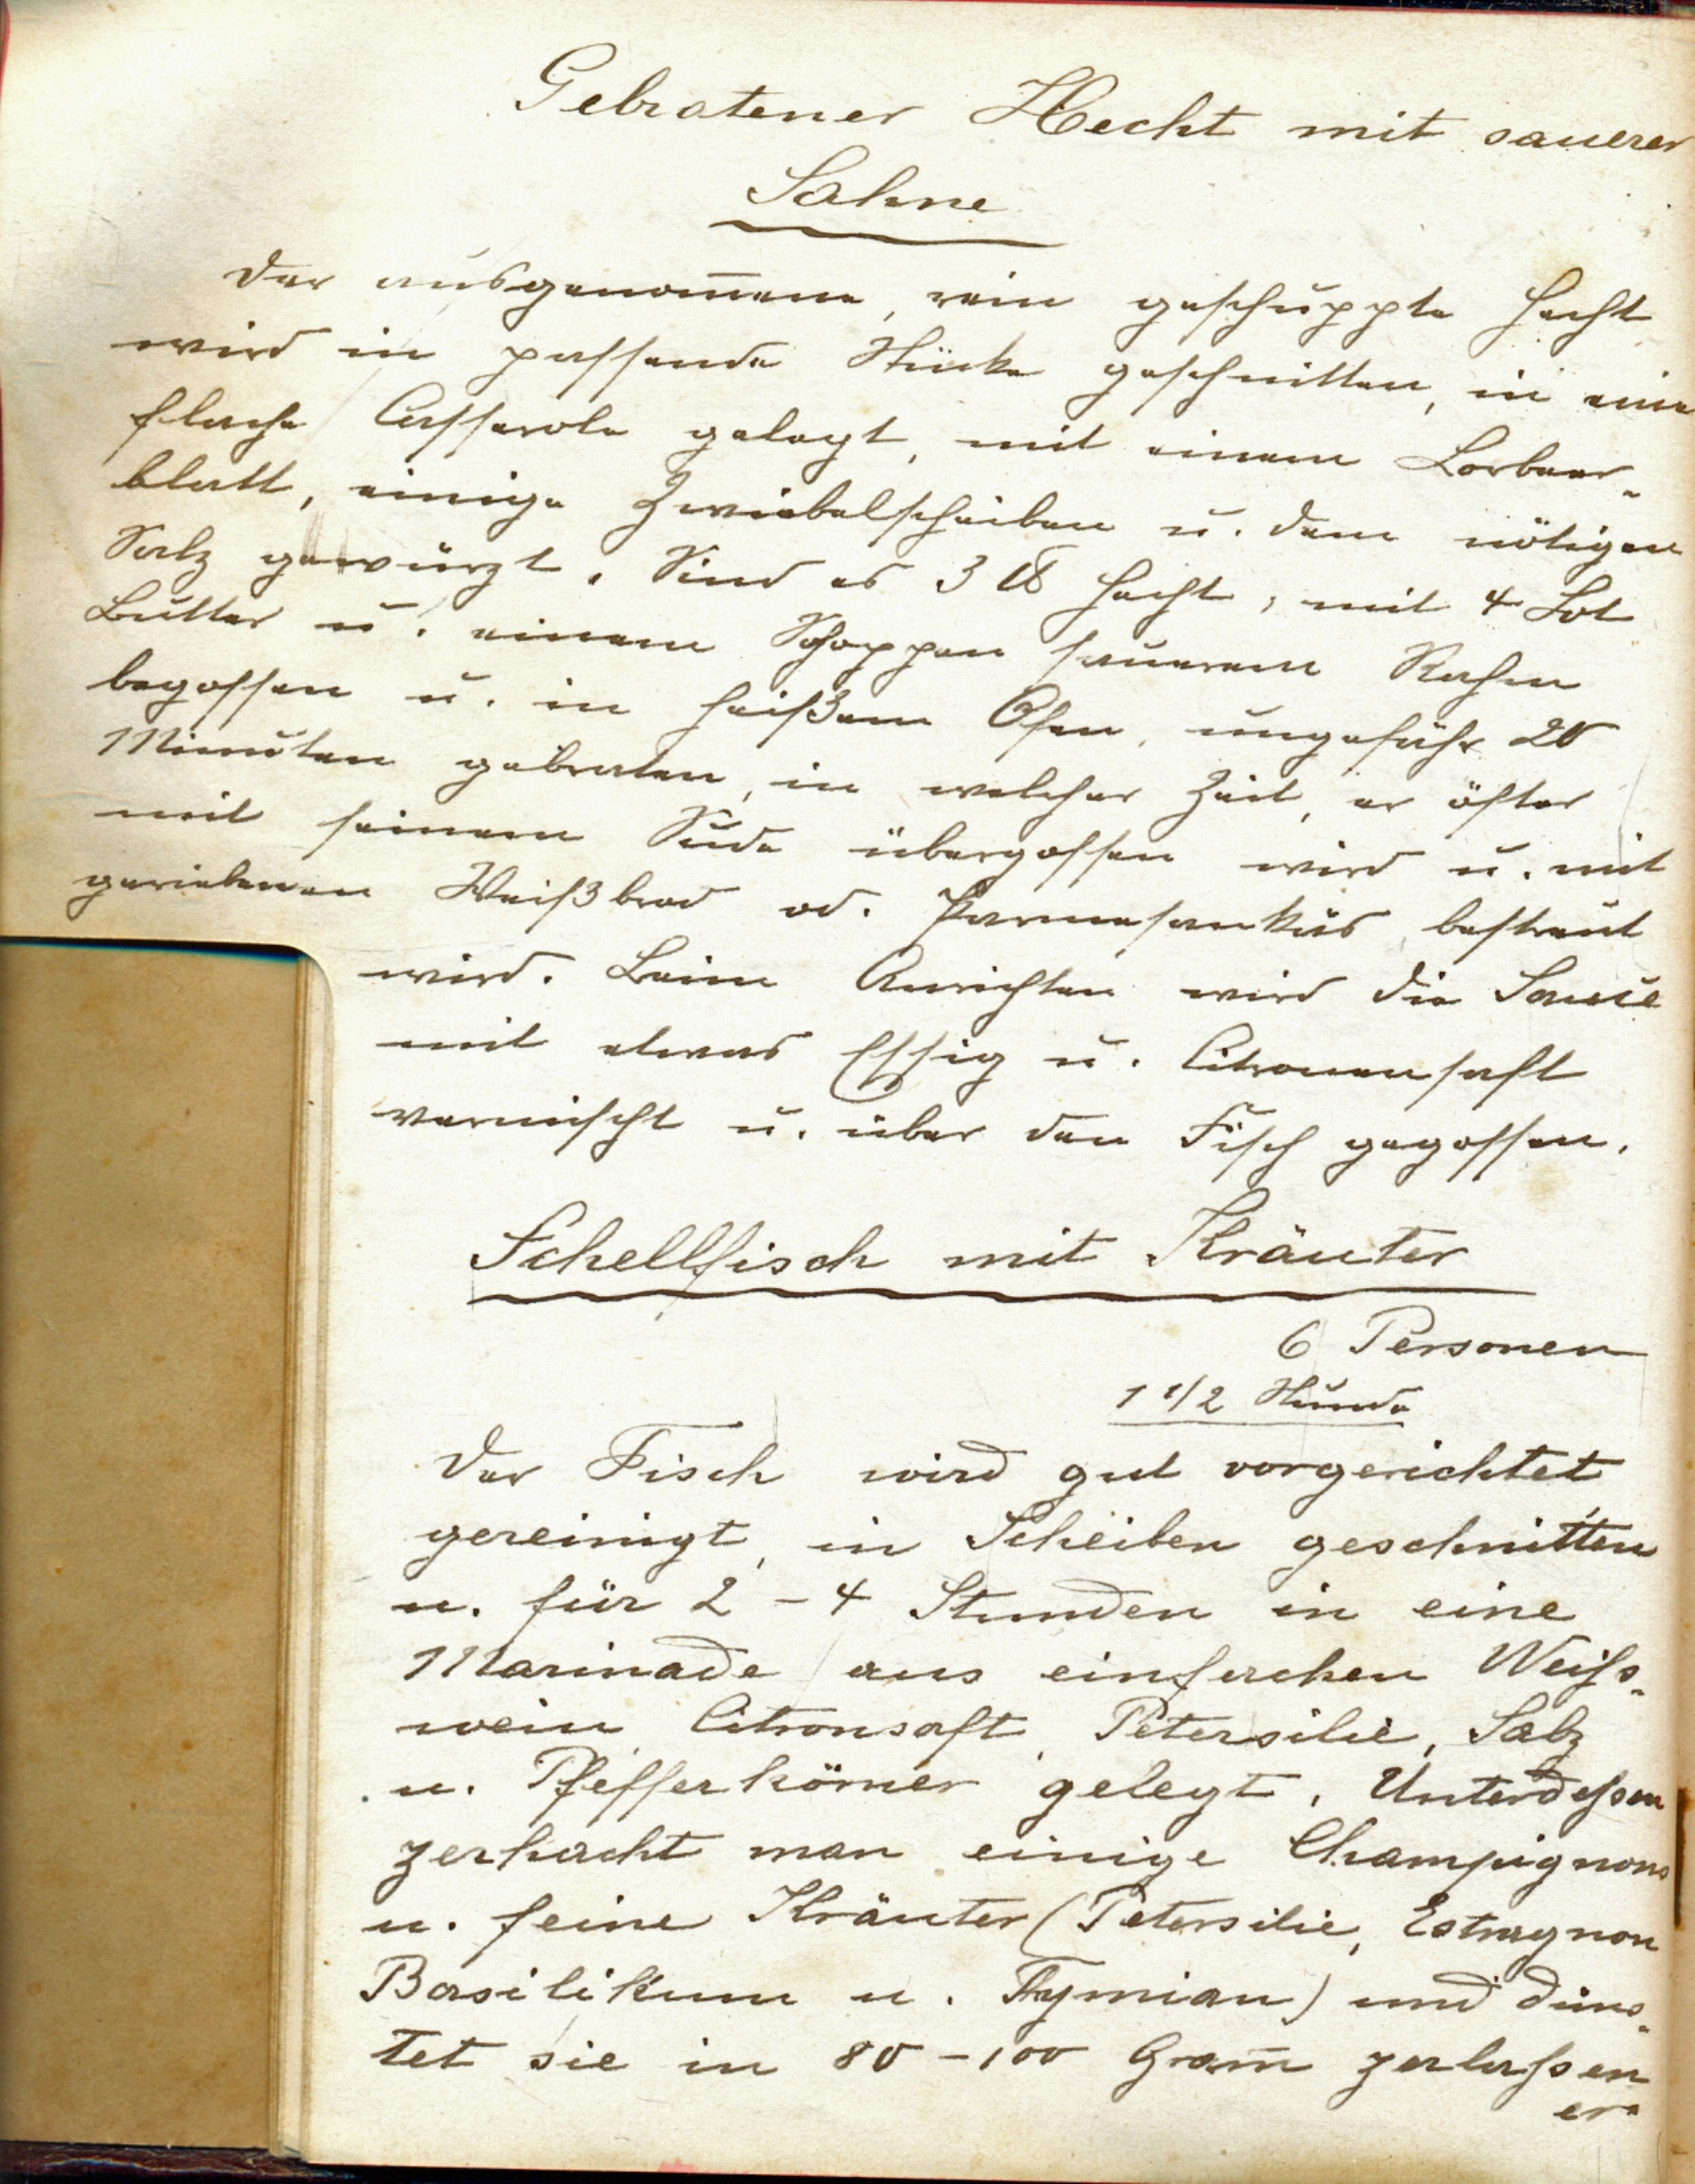 Gebratener Hecht mit sauerer
Sahne
Der ausgenom̄ene, rein geschuppte Hecht
wird in passende Stücke geschnitten, in eine
flache Casserole gelegt, mit einem Lorbeer-
blatt, einige Zwiebelscheiben u. dem nötigen
Salz gewürzt. Sind es 3 ℔ Hecht, mit 4 Lot
Butter u. einem Schoppen sauerem Rahm
begossen u. in heißem Ofen, ungefähr 20
Minuten gebraten, in welcher Zeit, er öfter
mit seinem Sude übergossen wird u. mit
geriebenen Weißbrod od. Parmesankäs bestreut
wird. Beim Anrichten wird die Sauce
mit etwas Essig u. Citronensaft
vermischt u. über den Fisch gegossen.
Schellfisch mit Kräuter
6 Personen
1 1/2 Stunde
Der Fisch wird gut vorgerichtet
gereinigt, in Scheiben geschnitten
u. für 2 - 4 Stunden in eine
Marinade aus einfachen Weiss-
wein, Citronsaft, Petersilie, Salz
u. Pfefferkörner gelegt. Unterdessen
zerhackt man einige Champignons
u. feine Kräuter (Petersilie, Estragnon
Basilikum u. Tymian) und düns-
tet sie in 80 - 100 Gram̄ zerlassen
er